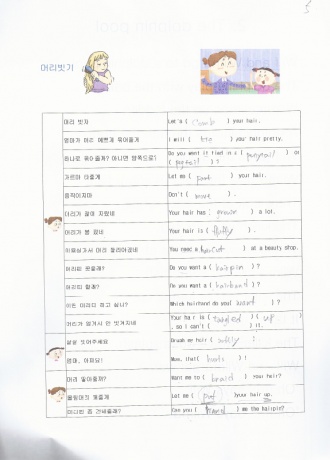 5
머리빗기
머리 빗자
Let's ( comb ) your hair.
엄마가 머리 예쁘게 묶어줄게
I will ( tie ) your hair pretty.
하나로 묶어줄까? 아니면 양쪽으로?
Do you want it tied in a ( ponytail ) or ( pigtail )?
가르마 타줄게
Let me ( part ) your hair.
움직이지마
Don't ( move ).
머리가 많이 자랐네
Your hair has ( grown ) a lot.
머리가 붕 떴네
Your hair is ( fluffy ).
미용실가서 머리 잘라야겠네
You need a ( haircut ) at a beauty shop.
머리핀 꽂을래?
Do you want a ( hairpin )?
머리띠 할래?
Do you want a ( hairband )?
어떤 머리띠 하고 싶니?
Which hairband do you ( want )?
머리가 엉켜서 안 빗겨지네
Your hair is ( tangled ) ( up ), so I can't ( ) it.
살살 빗어주세요
Brush my hair ( softly ).
엄마, 아파요!
Mom, that ( hurts )!
머리 땋아줄까?
Want me to ( braid ) your hair?
올림머리 해줄게
Let me ( put ) your hair up.
머리핀 좀 건네줄래?
Can you ( hand ) me the hairpin?